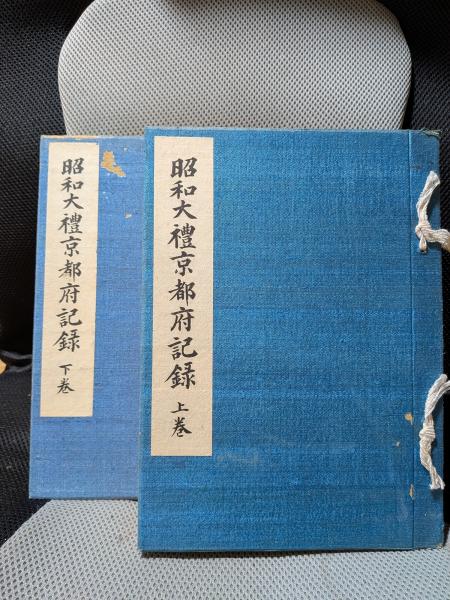 昭和大禮京都府記録
上巻
昭和大禮京都府記録
下巻